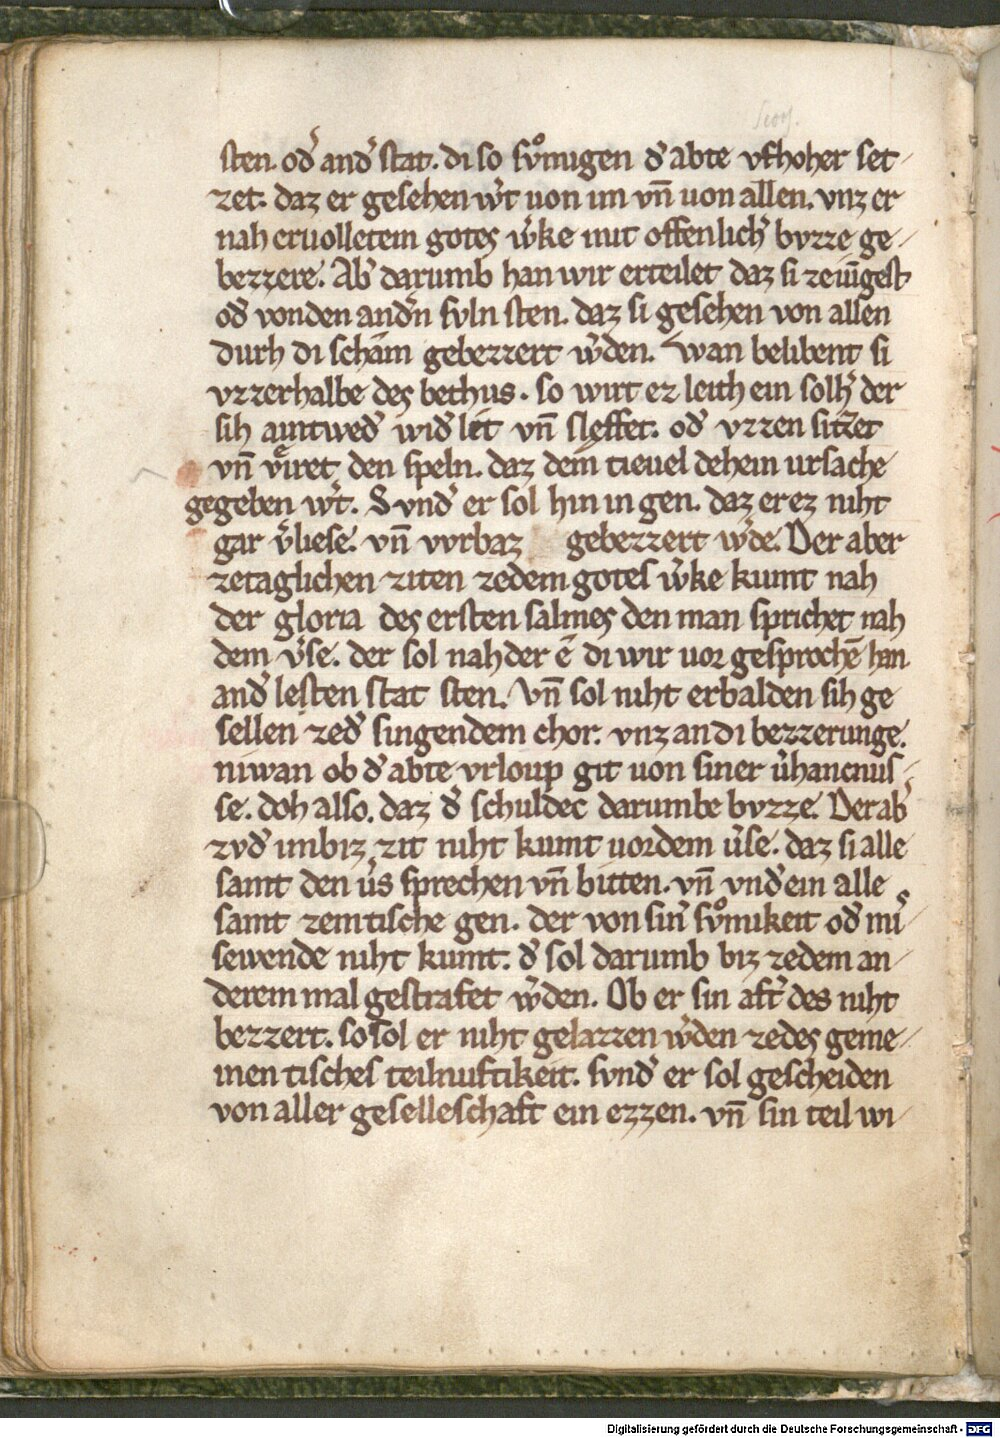 sten. od᷎ and᷎ stat. di so svͦmigen d᷎ abte vf hoher set/
zet. daz er gesehen w᷎t uon im vn̄ uon allen. vnz er
nah eruolletem gotes w᷎ke mit offenlich᷎ bvzze ge/
bezzere. Ab᷎ darumb han wir erteilet daz si ze iūgest
od᷎ von den and᷎n svln sten. daz si gesehen von allen
durh di scham gebezzert w᷎den. Wan belibent si
vzzerhalbe des bethus. so wirt ez leith ein solh᷎ der
sih aintwed᷎ wid᷎ leit vn̄ sleffet. od᷎ vzzen sitzet
vn̄ viret den speln. daz dem tieuel dehein ursache
gegeben w᷎t. Svnd᷎ er sol hin in gen. daz er ez niht
gar v᷎liese. vn̄ vvrbaz gebezzert w᷎de. Der aber
ze taglichen ziten ze dem gotes w᷎ke kumt nah
der gloria des ersten salmes den man sprichet nah
dem v᷎se. der sol nah der ē di wir uor gesprochē han
and᷎ lesten stat sten. Vn̄ sol niht erbalden sih ge
sellen ze d᷎ singendem chor. vnz an di bezzerunge.
niwan ob d᷎ abte vrloup git uon siner v᷎hancnus/
se. doh also. daz d᷎ schuldec darumbe bvzze. Der ab᷎
zv d᷎ imbiz zit niht kumt uor dem v᷎se. daz si alle
samt den v᷎s sprechen vn̄ bitten. vn̄ vnd᷎ ein alle
samt zem tische gen. der von sin᷎ svͦmikeit od᷎ mi᷎/
sewende niht kumt. d᷎ sol darumb biz ze dem an/
derem mal gestrafet w᷎den. Ob er sin aft᷎ des niht
bezzert. so sol er niht gelazzen w᷎den ze des geme/
inen tisches teilnuftikeit. svnd᷎ er sol gescheiden
von aller geselleschaft ein ezzen. vn̄ sin teil wi/
Digitalisierung gefördert durch die Deutsche Forschungsgemeinschaft - DFG